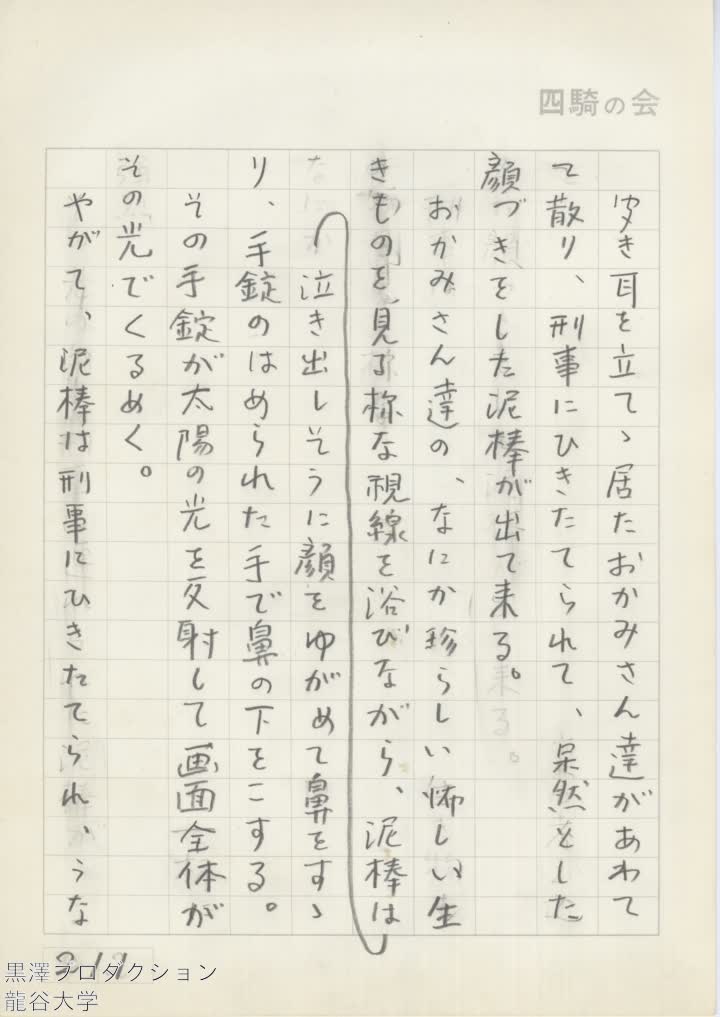 四騎の会
き耳を立てゝ居たおかみさん達があわて
て散り、刑事にひきたてられて、呆然とした
顔づきをした泥棒が出て来る。
おかみさん達の、なにか珍らしい怖しい生
きものを見る様な視線を浴びながら、泥棒は
泣き出しそうに顔をゆがめて鼻をすゝ
り、手錠のはめられた手で鼻の下をこする。
その手錠が太陽の光を反射して画面全体が
その光でくるめく。
やがて、泥棒は刑事にひきたてられ、うな
211
黒澤プロダクション
龍谷大学